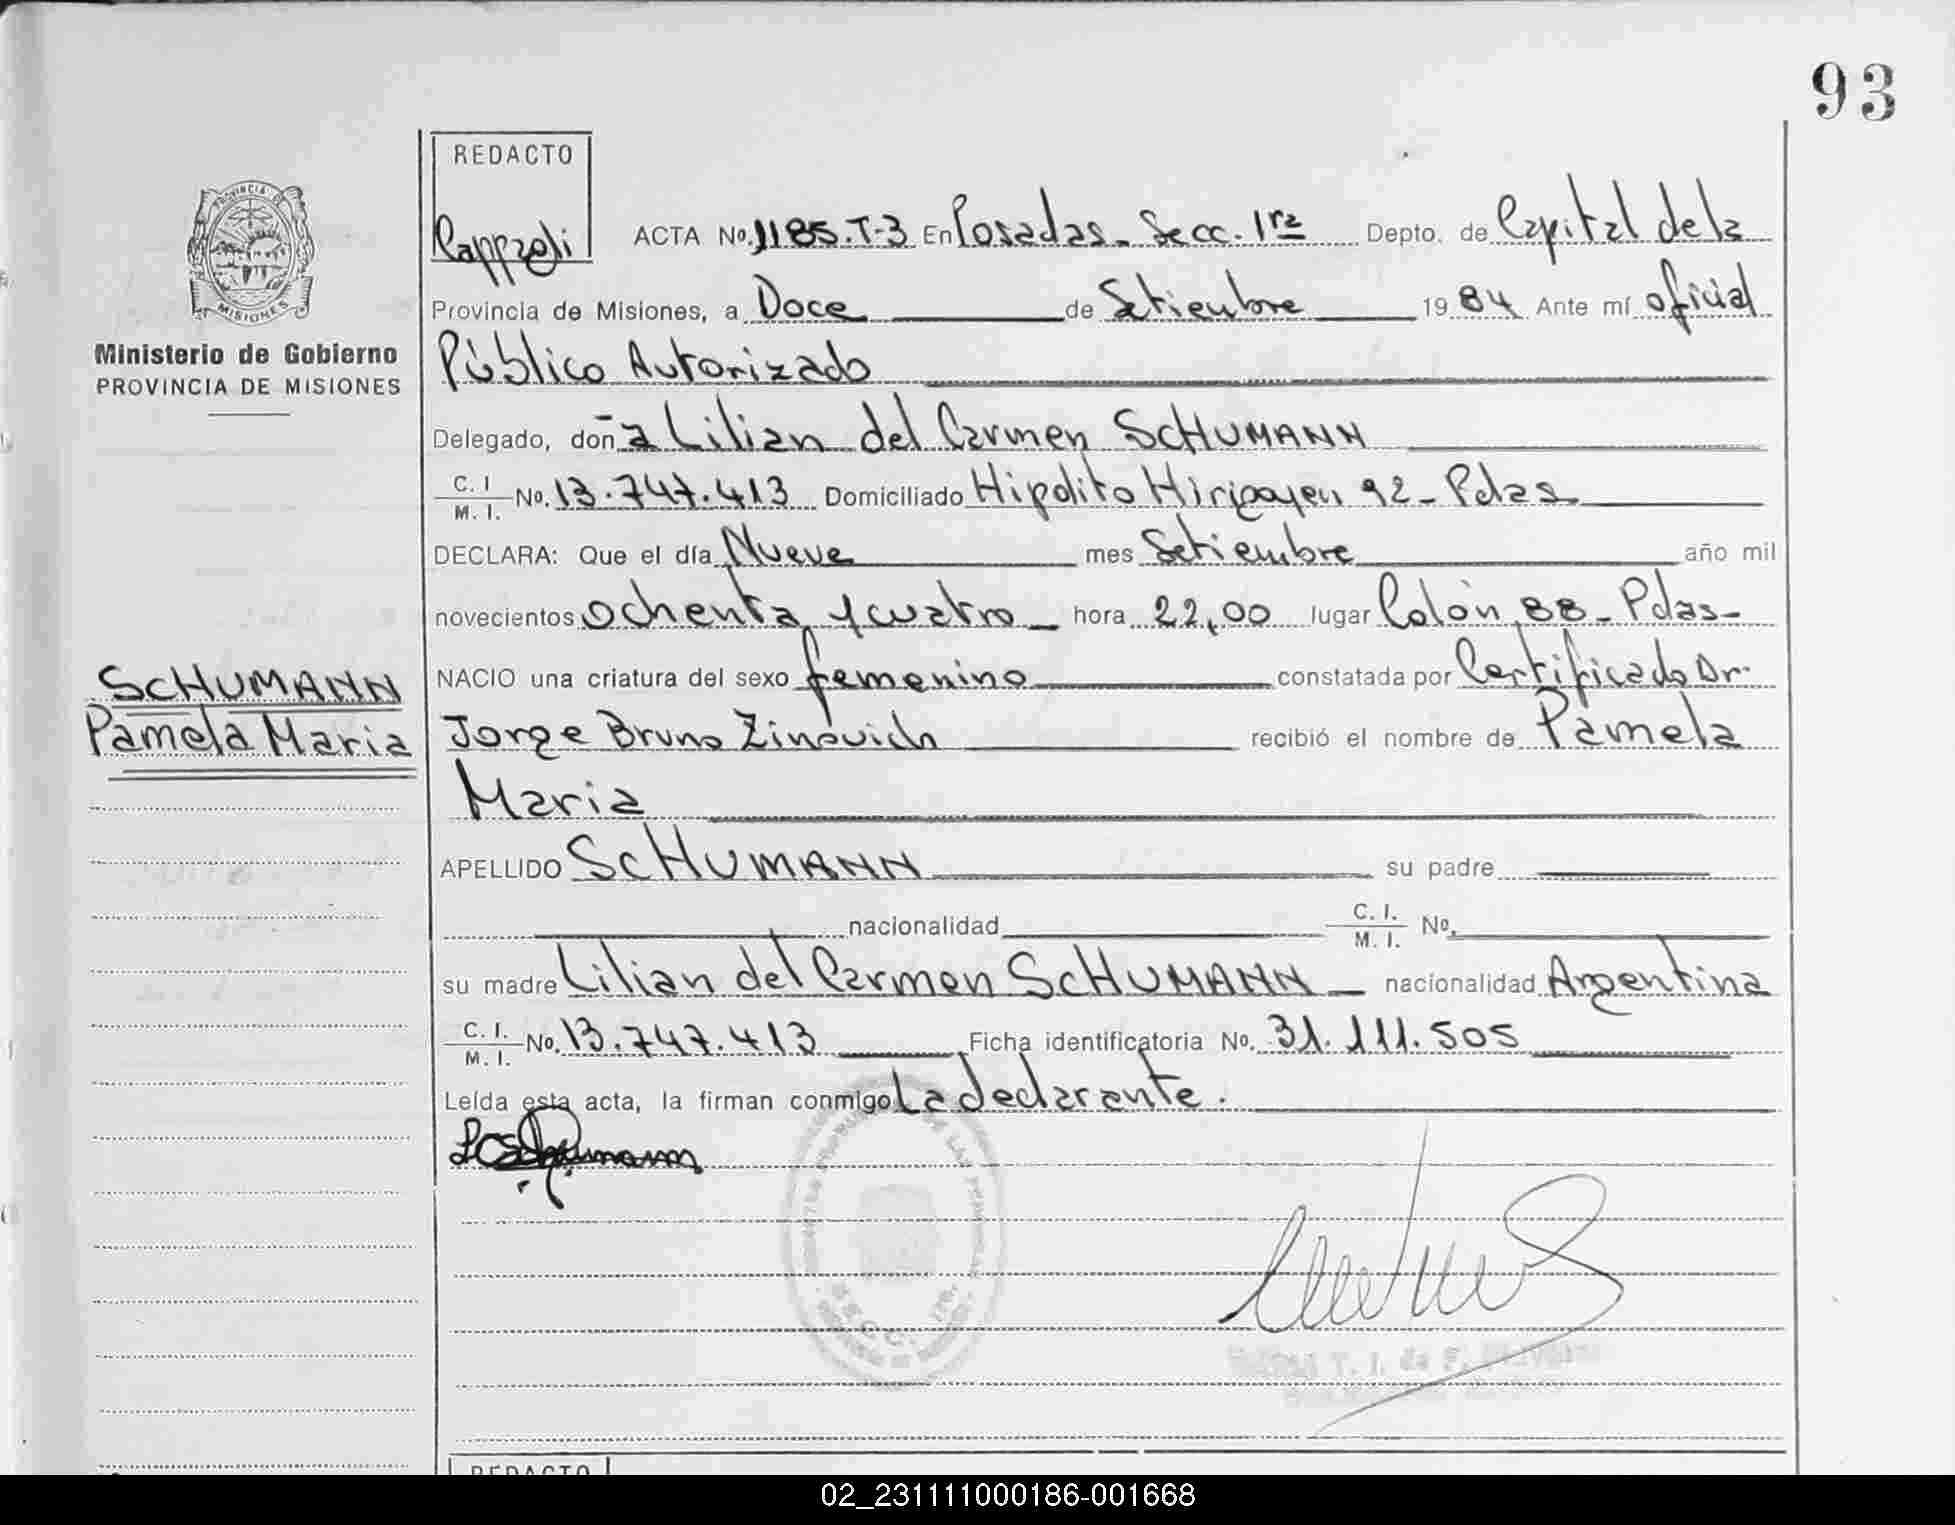 93
REDACTO
PROVINCIA DE
MISIONES
ACTA Nº. 1185.T-3 En Posadas - Secc. 1ra Depto. de Capital de la
Provincia de Misiones, a Doce de Setiembre 1984 Ante mí oficial
Ministerio de Gobierno
PROVINCIA DE MISIONES
Público Autorizado
Delegado, doña Lilian del Carmen SCHUMANN
C. I. / M. I. Nº. 13.747.413 Domiciliado Hipólito Hirigoyen 92 - Pdas
DECLARA: Que el día Nueve mes Setiembre año mil
novecientos ochenta y cuatro hora 22,00 lugar Colón 88 - Pdas -
SCHUMANN
Pamela Maria
NACIO una criatura del sexo femenino constatada por Certificado Dr.
Jorge Bruno Zinovich recibió el nombre de Pamela
Maria
APELLIDO SCHUMANN su padre
nacionalidad C. I. / M. I. Nº.
su madre Lilian del Carmen SCHUMANN nacionalidad Argentina
C. I. / M. I. Nº. 13.747.413 Ficha identificatoria Nº. 31.111.505
Leída esta acta, la firman conmigo La declarante.
SECC. 1ra.
T. I. de F.
REDACTO
02_231111000186-001668